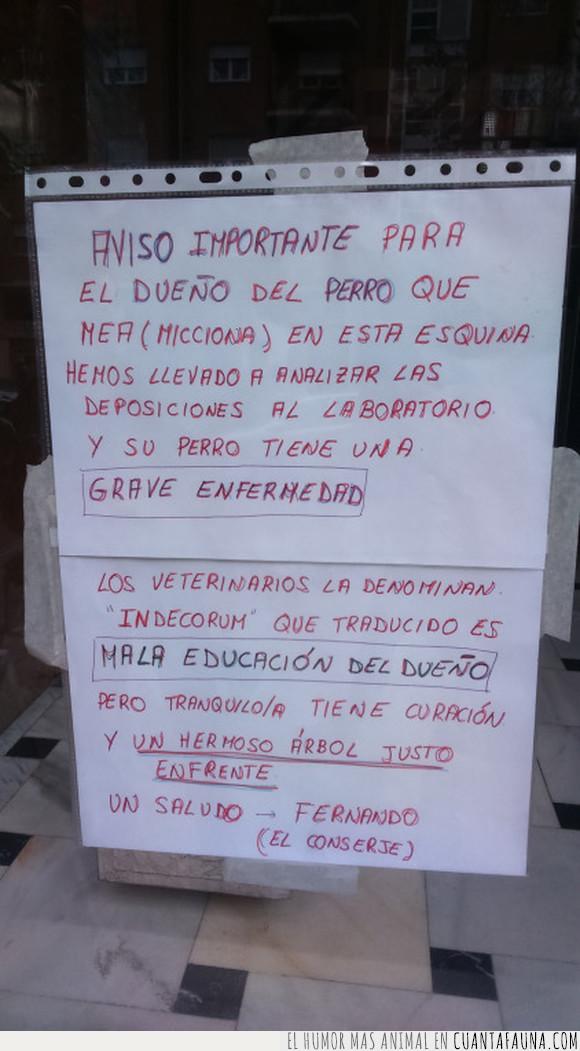 AVISO IMPORTANTE PARA
EL DUEÑO DEL PERRO QUE
MEA (MICCIONA) EN ESTA ESQUINA.
HEMOS LLEVADO A ANALIZAR LAS
DEPOSICIONES AL LABORATORIO.
Y SU PERRO TIENE UNA.
GRAVE ENFERMEDAD
LOS VETERINARIOS LA DENOMINAN.
"INDECORUM" QUE TRADUCIDO ES
MALA EDUCACIÓN DEL DUEÑO
PERO TRANQUILO/A TIENE CURACIÓN
Y UN HERMOSO ÁRBOL JUSTO
ENFRENTE.
UN SALUDO → FERNANDO
(EL CONSERJE)
EL HUMOR MAS ANIMAL EN CUANTAFAUNA.COM